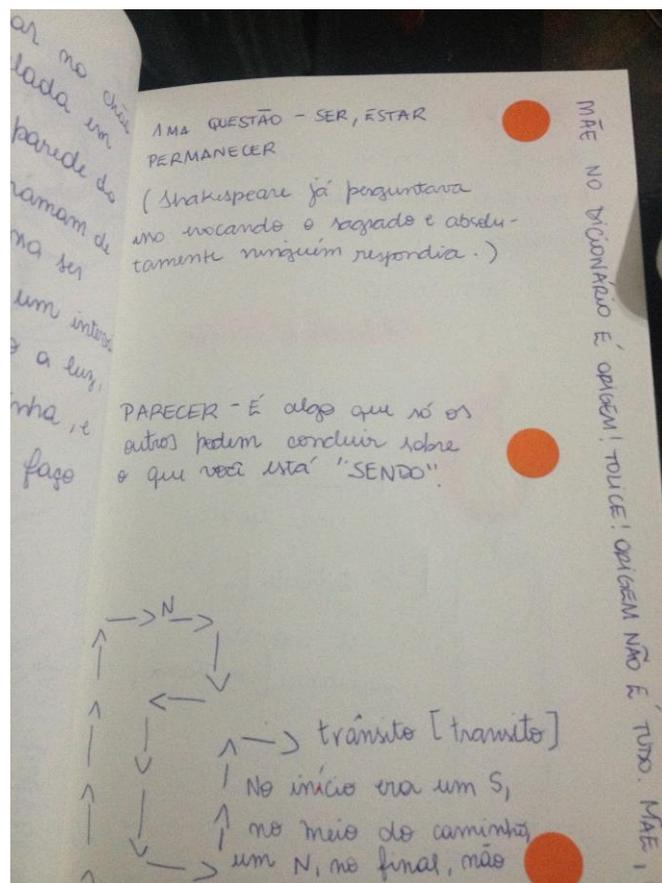 ar no chão
lada em
parede do
ramam de
na ser
um interv
a luz,
nha, e
faço
1MA QUESTÃO - SER, ESTAR
PERMANECER
(Shakespeare já perguntava
isso evocando o sagrado e absolu-
tamente ninguém respondia.)
PARECER - É algo que só os
outros podem concluir sobre
o que você está "SENDO".
N
trânsito [transito]
No início era um S,
no meio do caminho,
um N, no final, não
MÃE NO DICIONÁRIO É ORIGEM! TOLICE! ORIGEM NÃO É TUDO. MÃE,